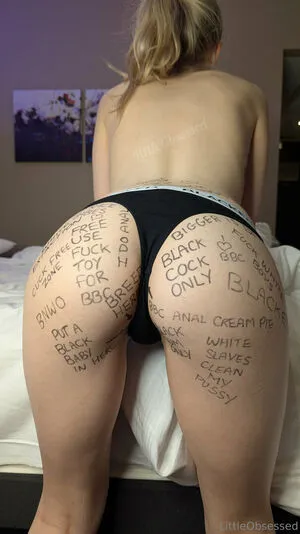 FREE
USE
FUCK
TOY
FOR
BBC
I DO ANAL
FREE
ZONE
BNWO
BREED
HER
PUT A
BLACK
BABY
IN HER
BIGGER
BLACK
COCK
ONLY
BBC
BLACK
BBC
ANAL CREAM PIE
ONLY
WHITE
SLAVES
CLEAN
MY
PUSSY
LittleObsessed